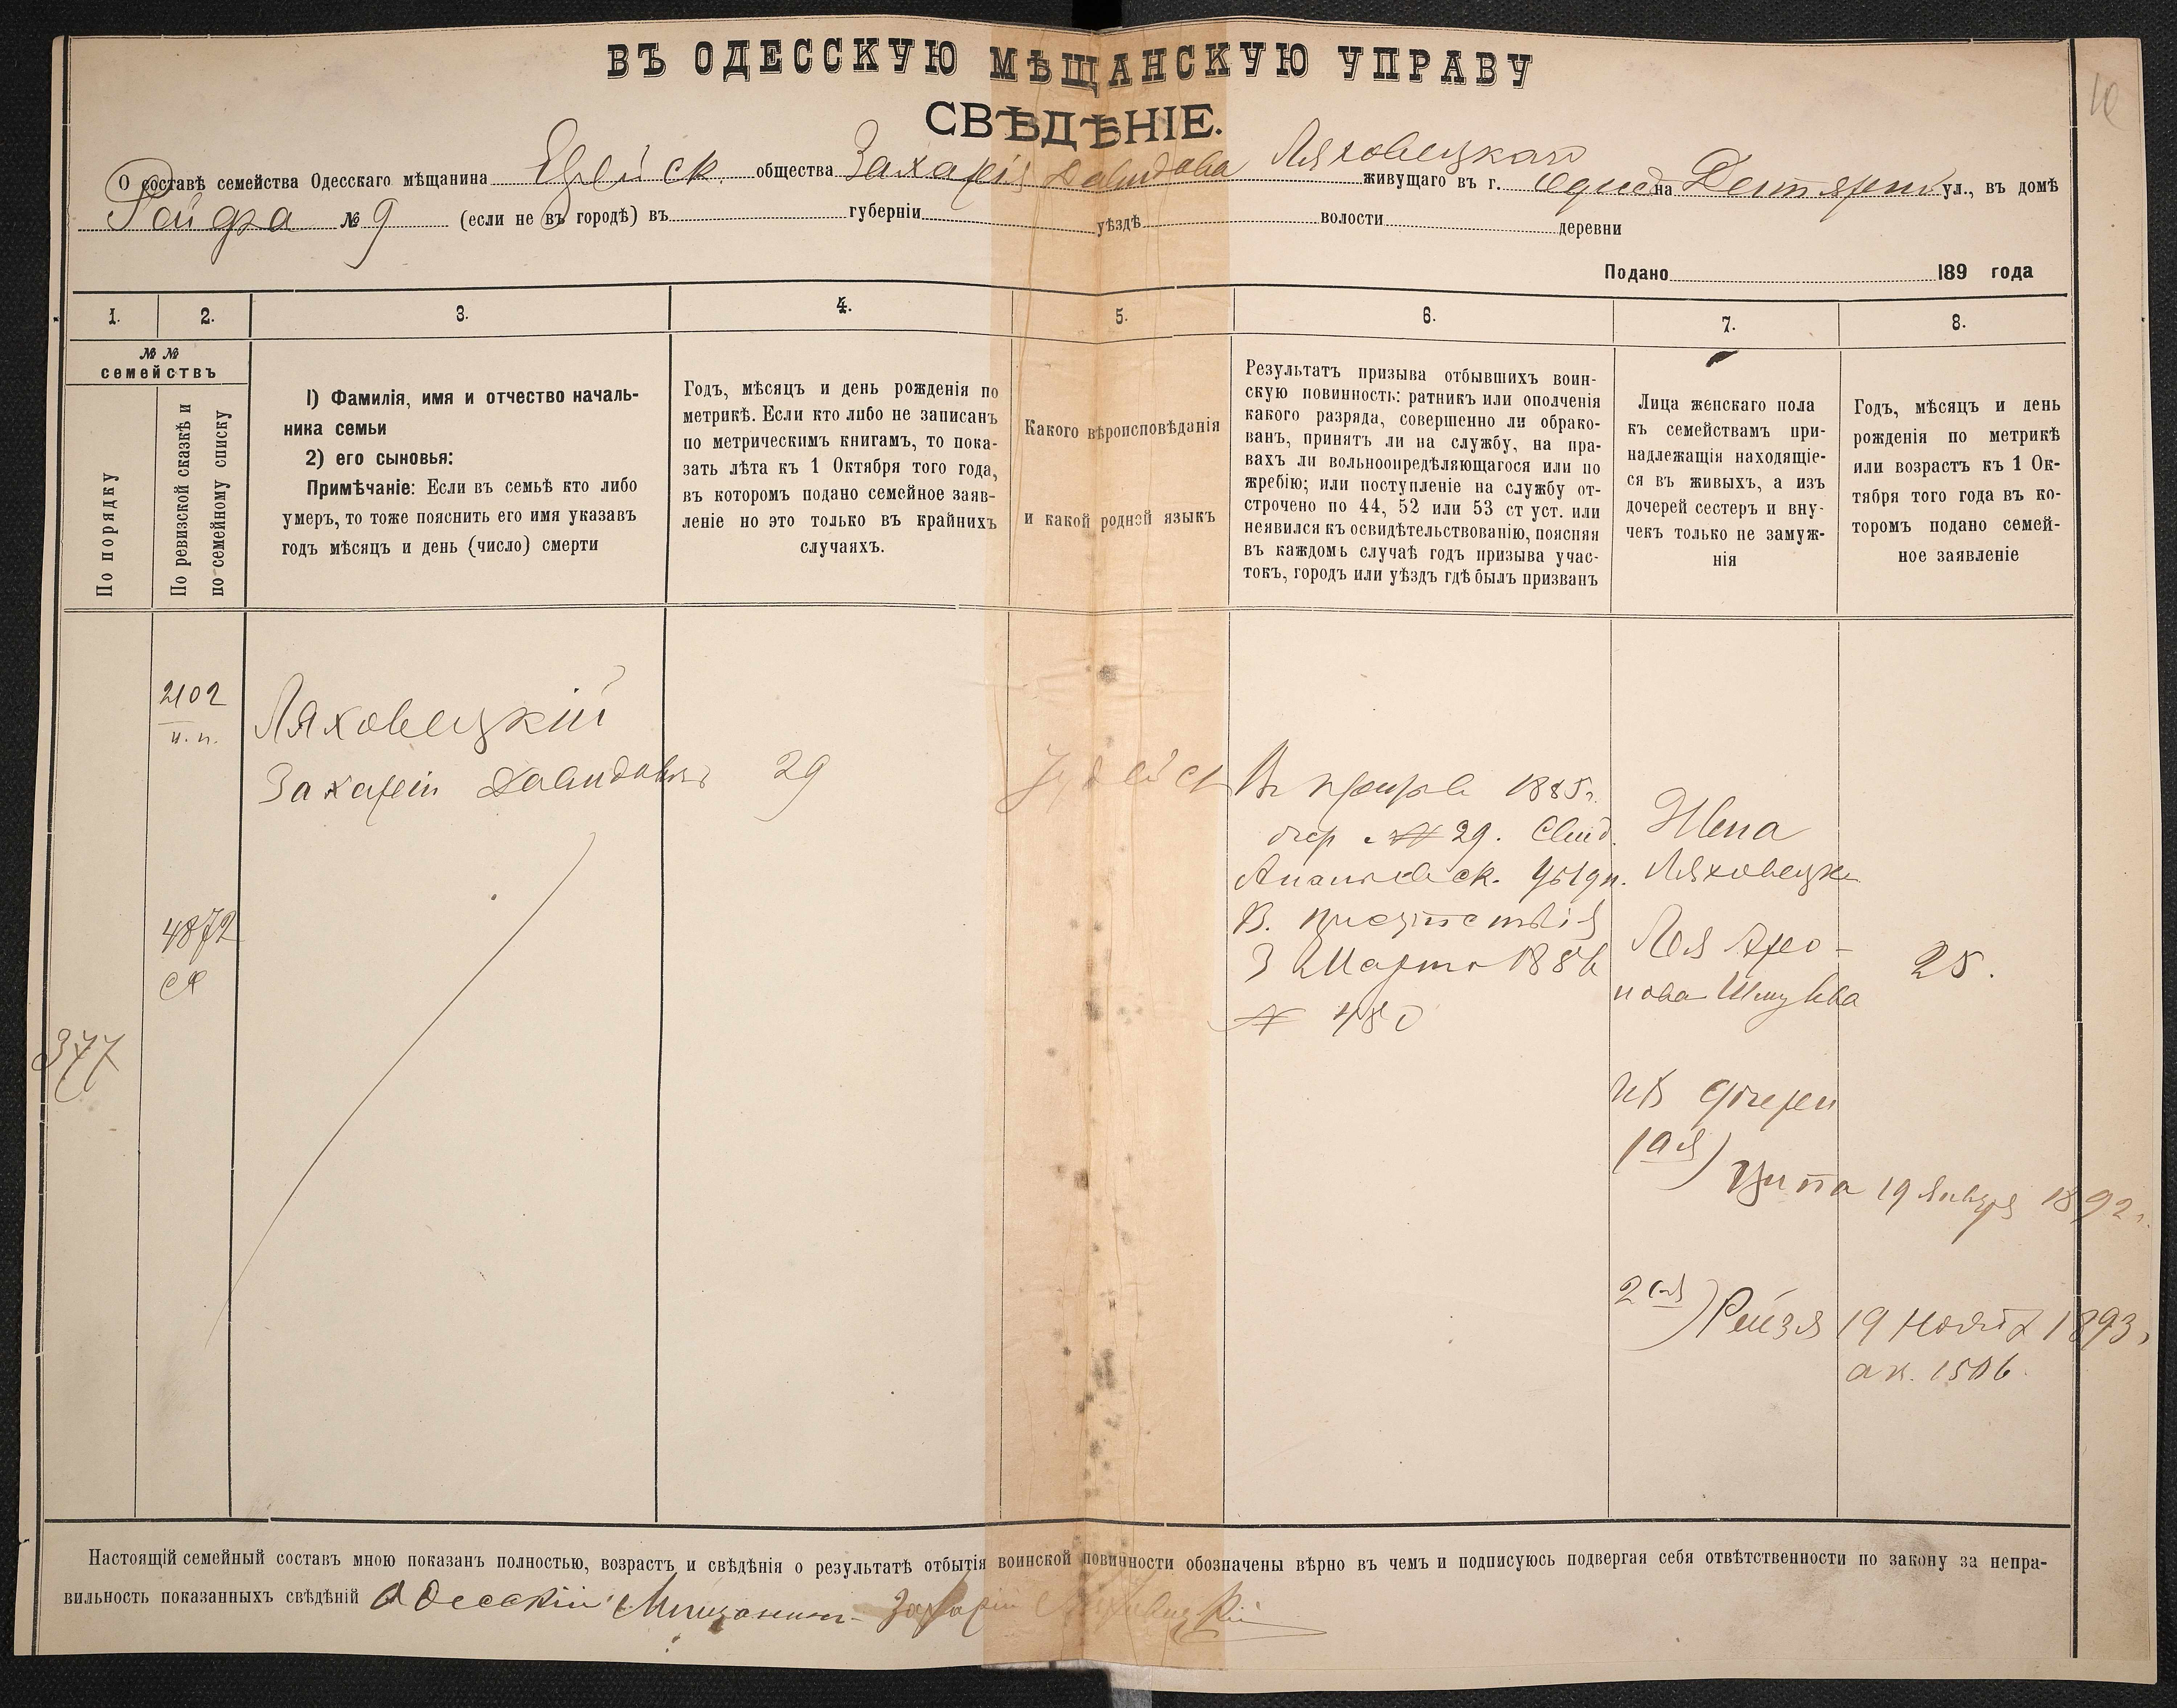 ВЪ ОДЕССКУЮ МѢЩАНСКУЮ УПРАВУ
СВѢДѢНІЕ.
О составѣ семейства Одесскаго мѣщанина Еврейск. общества Захарія Давидова Ляховецкаго живущаго въ г. Одессѣ на Дегтярн. ул., въ домѣ
Ройфа № 9 (если не въ городѣ) въ губерніи уѣздѣ волости деревни
Подано 189 года
1. 2. 3. 4. 5. 6. 7. 8.
№ № семействъ
По порядку
По ревизской сказкѣ и
по семейному списку
1) Фамилія, имя и отчество началь-
ника семьи
2) его сыновья:
Примѣчаніе: Если въ семьѣ кто либо
умеръ, то тоже пояснить его имя указавъ
годъ мѣсяцъ и день (число) смерти
Годъ, мѣсяцъ и день рожденія по
метрикѣ. Если кто либо не записанъ
по метрическимъ книгамъ, то пока-
зать лѣта къ 1 Октября того года,
въ которомъ подано семейное заяв-
леніе но это только въ крайнихъ
случаяхъ.
Какого вѣроисповѣданія
и какой родной языкъ
Результатъ призыва отбывшихъ воин-
скую повинность: ратникъ или ополченія
какого разряда, совершенно ли обрако-
ванъ, принятъ ли на службу, на пра-
вахъ ли вольноопредѣляющагося или по
жребію; или поступленіе на службу от-
строчено по 44, 52 или 53 ст уст. или
неявился къ освидѣтельствованію, поясняя
въ каждомъ случаѣ годъ призыва учас-
токъ, городъ или уѣздъ гдѣ былъ призванъ
Лица женскаго пола
къ семействамъ при-
надлежащія находящіе-
ся въ живыхъ, а изъ
дочерей сестеръ и вну-
чекъ только не замуж-
нія
Годъ, мѣсяцъ и день
рожденія по метрикѣ
или возрастъ къ 1 Ок-
тября того года въ ко-
торомъ подано семей-
ное заявленіе
377
2102
н. п.
4872
Ляховецкій
Захарій Давидовъ
29
Іудейск
Въ призывѣ 1885г.
№ 29. Свид.
Ананьевск. Уѣздн.
В. присутствія
3 Марта 1886
№ 480
Жена
Ляховецк
Лея Аро-
нова
25.
ихъ дочери
1ая) Ципа 19 Января 1892г.
2ая) Рейзя 19 Нояб 1893г
ак. 1506.
Настоящій семейный составъ мною показанъ полностью, возрастъ и свѣдѣнія о результатѣ отбытія воинской повинности обозначены вѣрно въ чемъ и подписуюсь подвергая себя отвѣтственности по закону за непра-
вильность показанныхъ свѣдѣній Одесскій Мещанин Захарій Ляховицкій